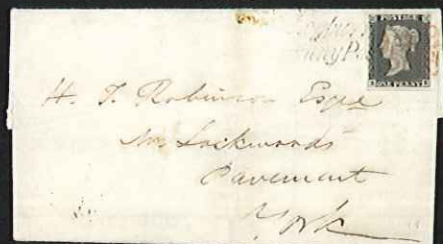 Penny Po
POSTAGE
ONE PENNY
H. T. Robinson Esqre
Mr Lockwoods
Pavement
York